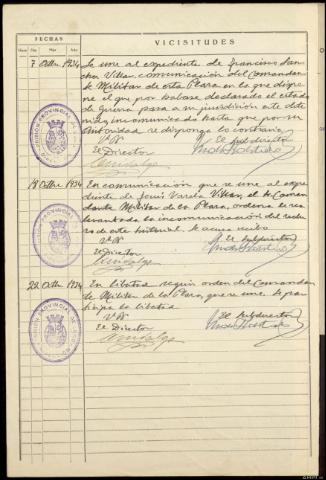 FECHAS
VICISITUDES
Hora Día Mes Año
7 Octbre 1934 Se une al expediente de Francisco San-
chez Villar, comunicación del Comandan-
te Militar de esta Plaza en la que dispo-
ne el que por haberse declarado el estado
de Guerra pasa a su jurisdición este dete-
nido, incomunicado hasta que por su
autoridad se disponga lo contrario
Vº Bº El Subdirector
El Director
18 Octbre 1934 En comunicación que se une al expe-
diente de Jesús Varela Villar, el Coman-
dante Militar de la Plaza, ordena sea
levantada la incomunicación del reclu-
so de este historial. Se acusa recibo
Vº Bº El Subdirector
El Director
29 Octbre 1934 En libertad según orden del Comandan-
te Militar de la Plaza, que se une.
la libertad
Vº Bº El Subdirector
El Director
PRISIÓN PROVINCIAL DE
PRISIÓN PROVINCIAL DE
PRISIÓN PROVINCIAL DE